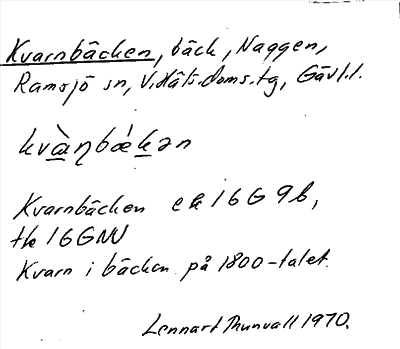 Kvarnbäcken, bäck, Naggen,
Ramsjö sn, V. Häls. doms. tg, Gävl.l.
kvànbǽkən
Kvarnbäcken ek 16G 9b,
tk 16GNV
Kvarn i bäcken på 1800-talet.
Lennart Thunvall 1970.